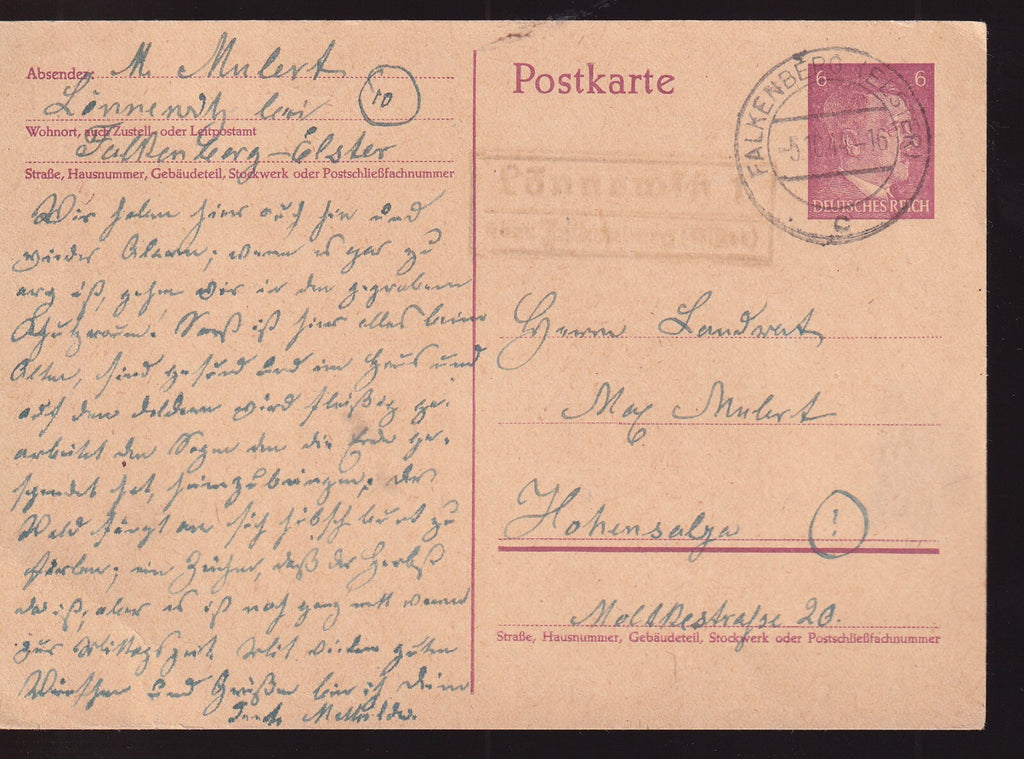 Absender: M. Mulert
Lönnewitz bei
10
Wohnort, auch Zustell- oder Leitpostamt
Falkenberg-Elster
Straße, Hausnummer, Gebäudeteil, Stockwerk oder Postschließfachnummer
Wir haben hier auch hin und
wieder Alarm; wenn es gar zu
arg ist, gehen wir in den gegrabenen
Schutzraum. Sonst ist hier alles beim
Alten, sind gesund und im Haus und
auf den Feldern wird fleißig ge-
arbeitet den Segen den die Erde ge-
spendet hat, heimzubringen; der
Wald fängt an sich hübsch bunt zu
färben; ein Zeichen, daß der Herbst
da ist, aber es ist noch ganz nett warm
zur Mittagszeit. Mit vielen guten
Wünschen und Grüßen bin ich Deine
Tante Mathilde.
Postkarte
6 6
DEUTSCHES REICH
FALKENBERG (ELSTER)
c
Herrn Landrat
Max Mulert
Hohensalza
!
Moltkestraße 20.
Straße, Hausnummer, Gebäudeteil, Stockwerk oder Postschließfachnummer